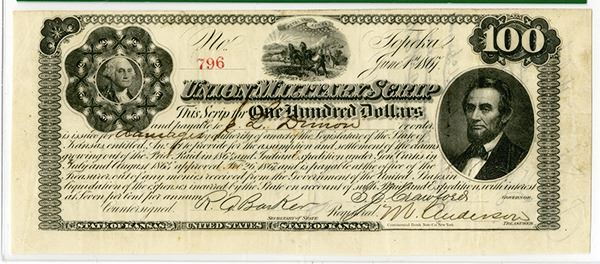 No. 796
Topeka
June 1st 1867
100
UNION MILITARY SCRIP
This Scrip for One Hundred Dollars
and payable to or order
is issued for damages under authority of an act of the Legislature of the State of
Kansas, entitled, An Act to provide for the assumption and settlement of the claims
growing out of the Price Raid in 1864 and Indian Expedition under Gen. Curtis in
July and August 1864, approved 1867 and is payable at the office of the
Treasurer, out of any moneys received from the Government of the United States in
liquidation of the expenses incurred by the State on account of such Raid and Expedition, with interest
at Seven per cent per annum.
S. J. Crawford GOVERNOR
Countersigned. R. A. Barker SECRETARY OF STATE
Registered M. Anderson TREASURER
STATE OF KANSAS UNITED STATES STATE OF KANSAS
Continental Bank Note Co. New York